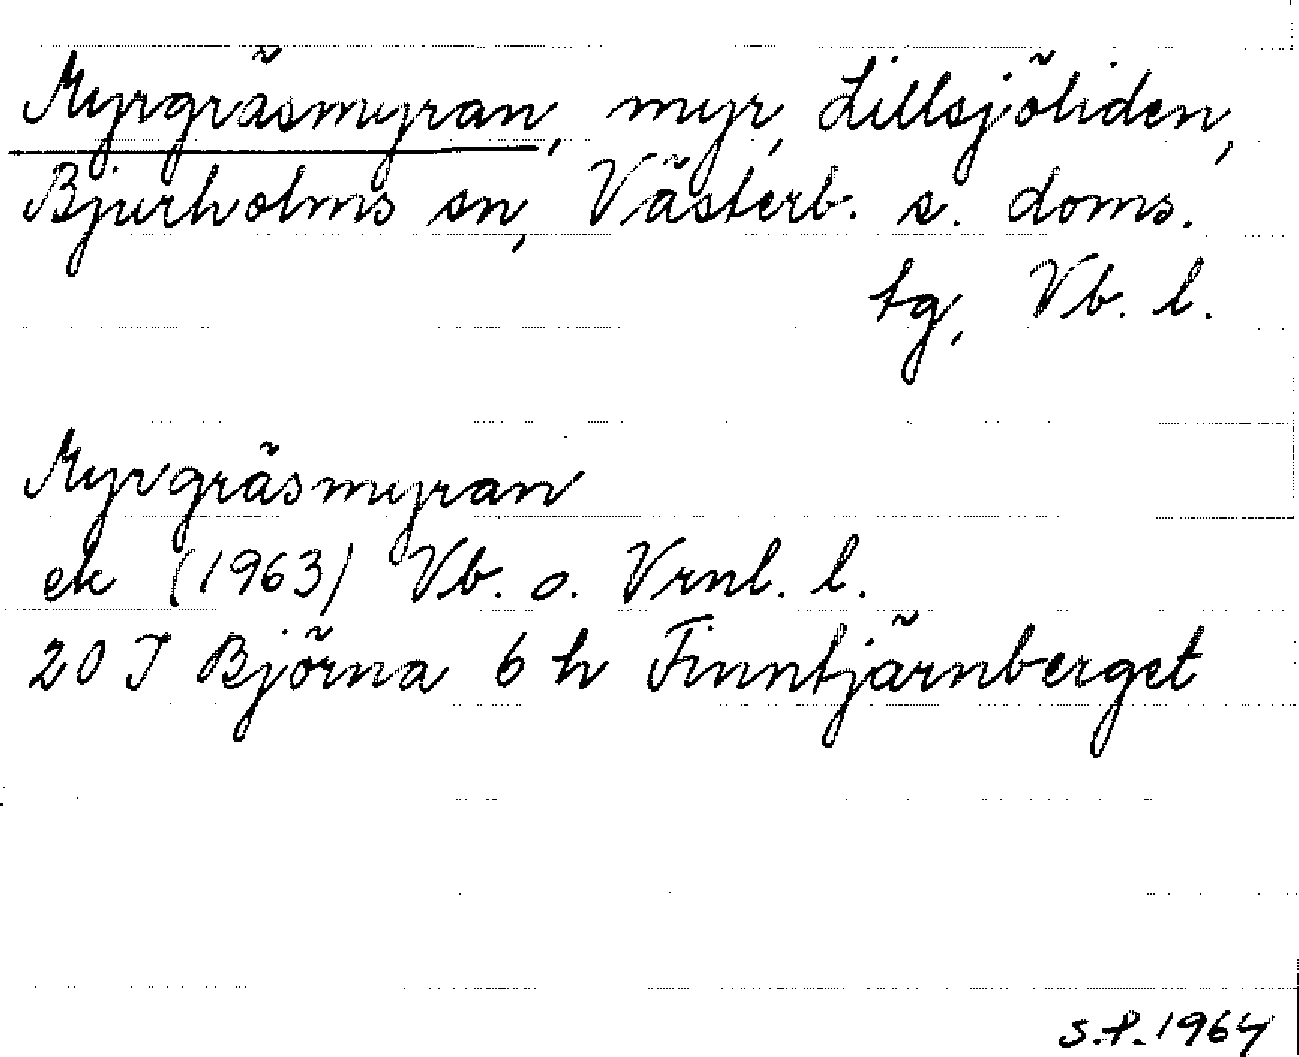 Myrgräsmyran, myr, Lillsjöliden,
Bjurholms sn, Västerb. s. doms.
tg, Vb. l.
Myrgräsmyran
ek (1963) Vb. o. Vrnl. l.
20 I Björna 6 h Finntjärnberget
S.P. 1964